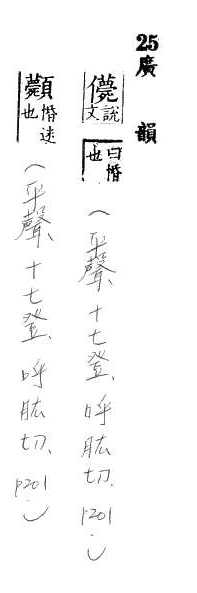 25廣韻
㒇說文曰惛也(平聲、十七登、呼肱切、p201。)
顭惛迷也(平聲、十七登、呼肱切、p201。)